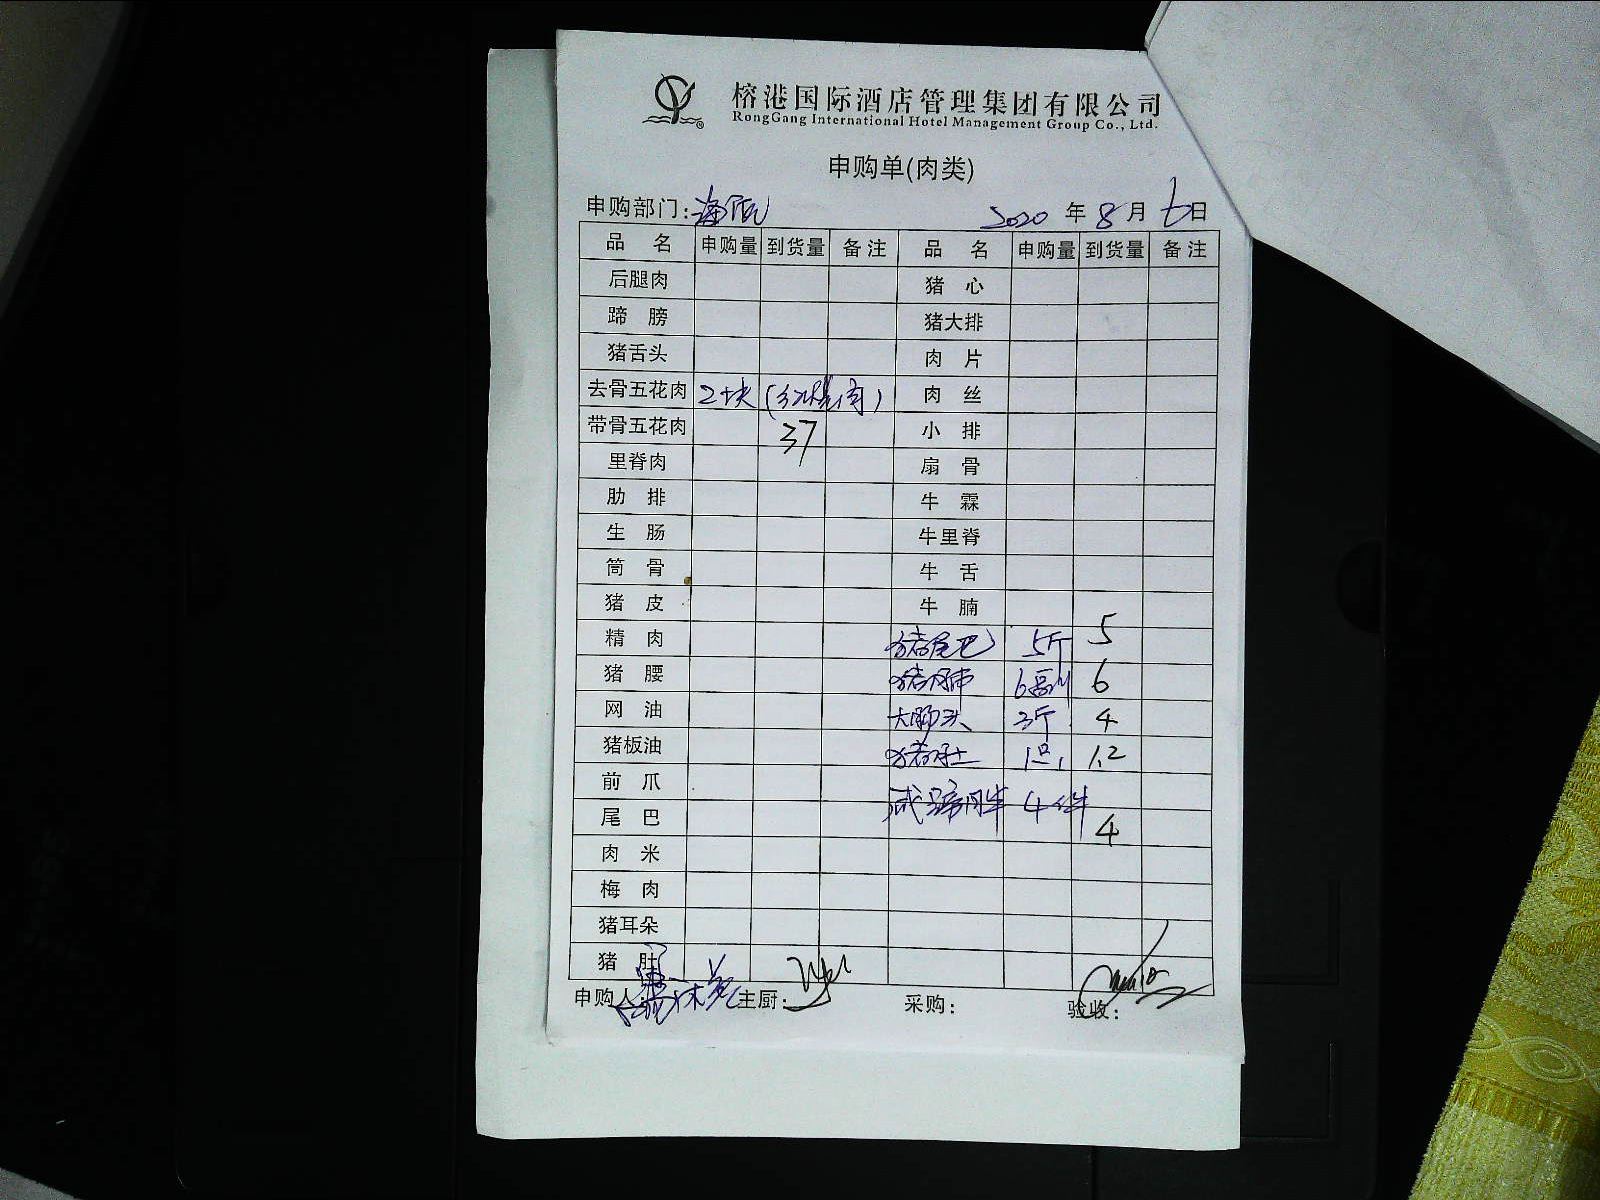 榕港国际酒店管理集团有限公司
RongGang International Hotel Management Group Co., Ltd.
申购单(肉类)
申购部门: 2020 年 8 月 七 日
品 名 申购量 到货量 备注 品 名 申购量 到货量 备注
后腿肉 猪 心
蹄 膀 猪大排
猪舌头 肉 片
去骨五花肉 2块 (红烧肉) 肉 丝
带骨五花肉 37 小 排
里脊肉 扇 骨
肋 排 牛 霖
生 肠 牛里脊
筒 骨 牛 舌
猪 皮 牛 腩
精 肉 猪尾巴 5斤 5
猪 腰 猪肺 6副 6
网 油 大肠头 3斤 4
猪板油 猪肚 1只 1.2
前 爪
尾 巴 咸蹄 4件 4
肉 米
梅 肉
猪耳朵
猪 肚
申购人: 主厨: 采购: 验收: